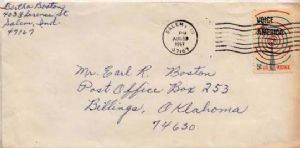 Bertha Boston
403 Florence St
Salem, Ind
47167
SALEM, IND
PM
AUG
1967
47167
VOICE
AMERICA
5¢ U.S. POSTAGE
Mr. Earl R. Boston
Post Office Box 253
Billings, Oklahoma
74630